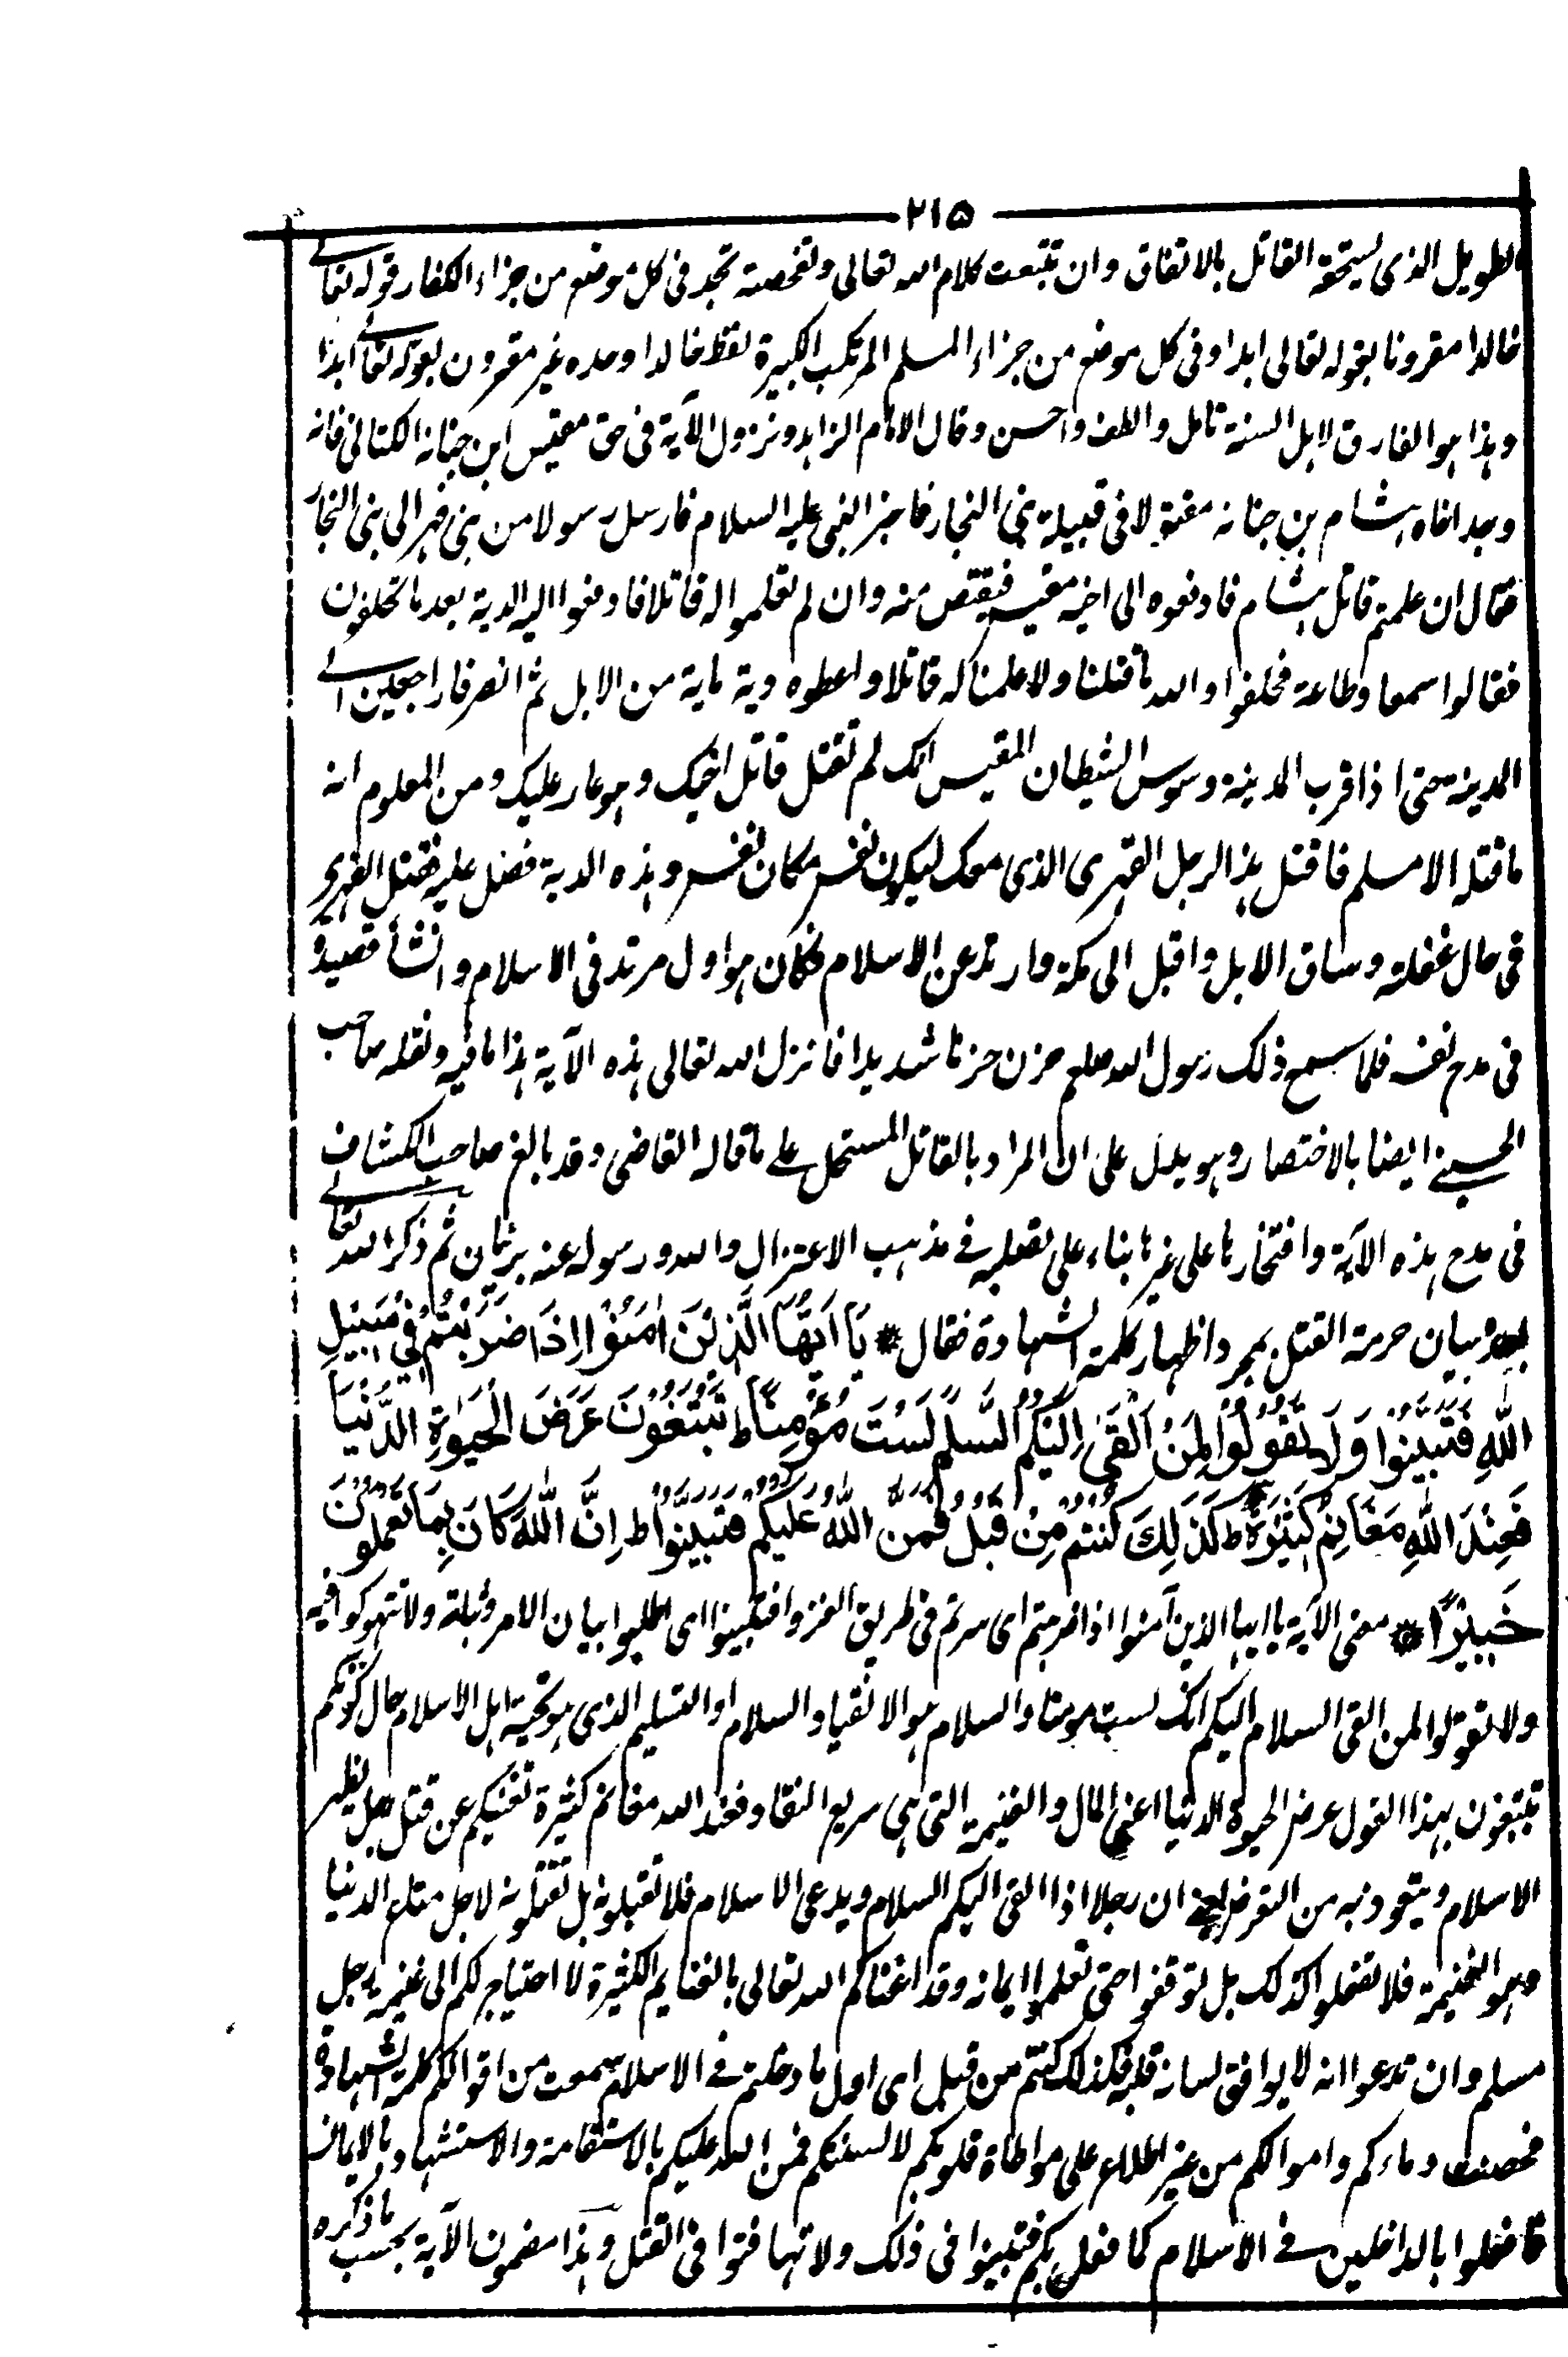 ۲۱۵
الطويل الذى يستحقه القاتل بالاتفاق وان تتبعت كلام الله تعالى وتفحصته تجد فى كل موضع من جزاء الكفار قوله تعالے
خالدا مقرونا بقوله تعالى ابدا وفى كل موضع من جزاء المسلم المرتكب الكبيرة لفظ خالدا وحده غير مقرون بقوله تعالے ابدا
وہذا ہو الفارق لاہل السنة تامل والطف واحسن وقال الامام الزاہد ونزول الآية فى حق مقيس ابن جنانة الكنانى فانه
وجد اخاہ ہشام بن جنانة مقتولا فى قبيلة بنى النجار فاخبر النبى عليه السلام فارسل رسولا من بنى فهر الى بنى النجار
فقال ان علمتم قاتل ہشام فادفعوه الى اخيه مقيس فيقتص منه وان لم تعلموا له قاتلا فادفعوا اليه الدية بعد ما تحلفون
فقالوا سمعا وطاعة فحلفوا والله ما قتلنا ولا علمنا له قاتلا واعطوه دية ماية من الابل ثم انصرفا راجعين الے
المدينة حتى اذا قرب المدينة وسوس الشيطان المقيس انك لم تقتل قاتل اخيك وہو عار عليك ومن المعلوم انه
ما قتله الا مسلم فاقتل ہذا الرجل الفهرى الذى معك ليكون نفس مكان نفس وہذه الدية فضل عليه فقتل الفهرى
فى حال غفلته وساق الابل واقبل الى مكة وارتد عن الاسلام فكان ہو اول مرتد فى الاسلام وانشأ قصيدة
فى مدح نفسه فلما سمع ذلك رسول الله صلعم حزن حزنا شديدا فانزل الله تعالى ہذه الآية ہذا ما فيه ونقله صاحب
الحسينے ايضا بالاختصار وہو يدل على ان المراد بالقاتل المستحل علے ما قاله القاضى وقد بالغ صاحب الكشاف
فى مدح ہذه الآية وافتخارہا على غيرہا بناء على تصلبه فے مذہب الاعتزال والله ورسوله عنه بريئان ثم ذكر الله تعالے
بعده بيان حرمة القتل بمجرد اظهار كلمة الشهادة فقال * يَا اَيُّهَا الَّذِيْنَ اٰمَنُوْا اِذَا ضَرَبْتُمْ فِيْ سَبِيْلِ
اللّٰهِ فَتَبَيَّنُوْا وَلَا تَقُوْلُوْا لِمَنْ اَلْقٰى اِلَيْكُمُ السَّلٰمَ لَسْتَ مُؤْمِنًا ط تَبْتَغُوْنَ عَرَضَ الْحَيٰوةِ الدُّنْيَا
فَعِنْدَ اللّٰهِ مَغَانِمُ كَثِيْرَةٌ ط كَذٰلِكَ كُنْتُمْ مِنْ قَبْلُ فَمَنَّ اللّٰهُ عَلَيْكُمْ فَتَبَيَّنُوْا ط اِنَّ اللّٰهَ كَانَ بِمَا تَعْمَلُوْنَ
خَبِيْرًا * معنى الآية يا ايها الذين آمنوا اذا ضربتم اى سرتم فى طريق الغزو افتبينوا اى اطلبوا بيان الامر وثباته ولا تتهوكوا فيه
ولا تقولوا لمن القى السلام اليكم انك لست مومنا والسلام ہو الانقياد السلام او التسليم الذى ہو تحية اہل الاسلام حال كونكم
تبتغون بهذا القول عرض الحيوة الدنيا اعنى المال والغنيمة التى ہى سريع النفاد فعند الله مغانم كثيرة تغنيكم عن قتل رجل يظہر
الاسلام ويتعوذ به من التعرض يعنے ان رجلا اذا القى اليكم السلام ويدعى الاسلام فلا تقبلونه بل تقتلونه لاجل متاع الدنيا
وہو الغنيمة فلا تفعلوا كذلك بل توقفوا حتى تعلموا ايمانه وقد اغناكم الله تعالى بالغنايم الكثيرة لا احتياج لكم الى غنيمة رجل
مسلم وان تدعوا انه لا يوافق لسانه قلبه فكذلك كنتم من قبل اى اول ما دخلتم فے الاسلام سمعت من اقوالكم كلمة الشہادة
فحصنت دماءكم واموالكم من غير اطلاع على مواطاة قلوبكم لالسنتكم فمن الله عليكم بالاستقامة والاستشہاد بالايمان
فافعلوا بالداخلين فے الاسلام كما فعل بكم فتبينوا فى ذلك ولا تہافتوا فى القتل وہذا مضمون الآية بحسب ما ذكره